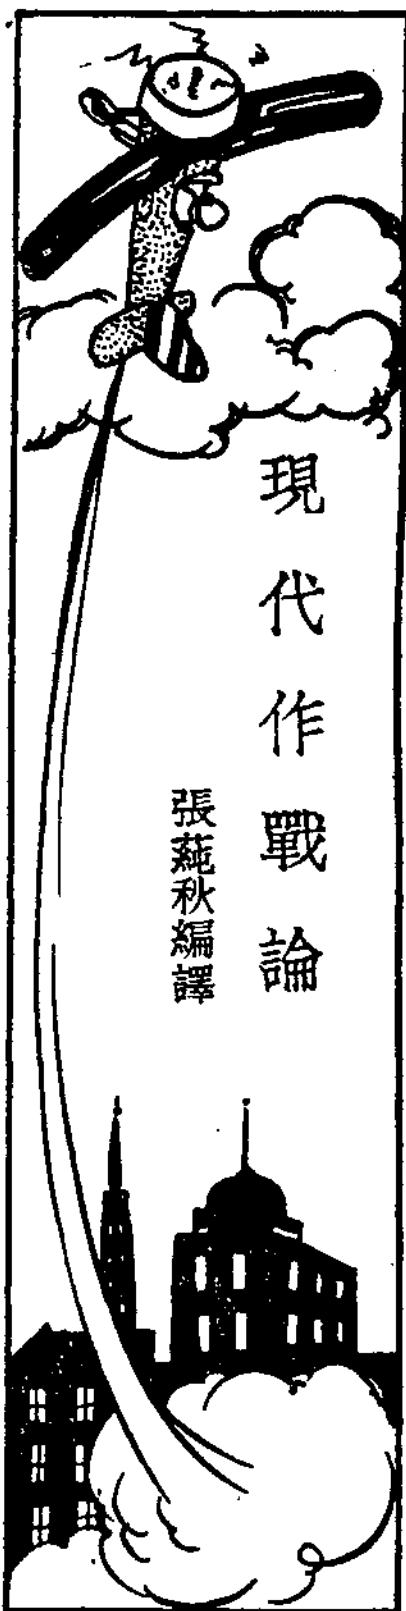 現代作戰論
張蒓秋編譯